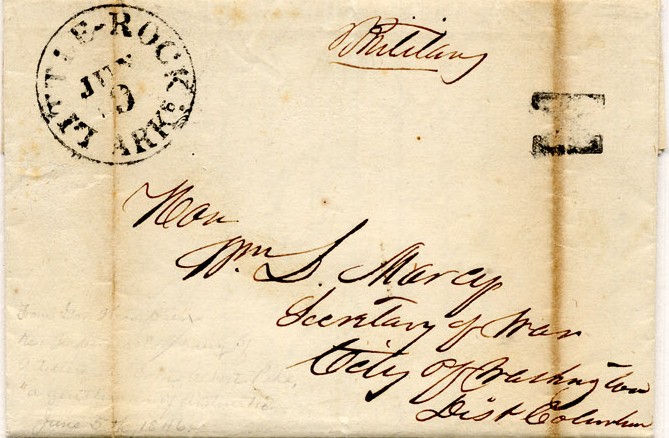 LITTLE-ROCK
JUN
9
ARKS
Military
Hon
Wm L. Marcy
Secretary of War
City of Washington
Dist Columbia
June 5th 1846